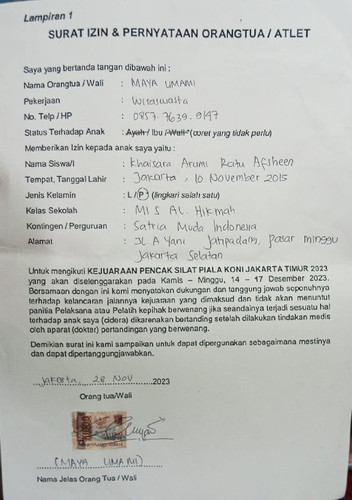 Lampiran 1
SURAT IZIN & PERNYATAAN ORANGTUA / ATLET
Saya yang bertanda tangan dibawah ini :
Nama Orangtua / Wali : MAYA UMAMI
Pekerjaan : Wiraswasta
No. Telp / HP : 0857 7639 9147
Status Terhadap Anak : Ayah / Ibu / Wali* (coret yang tidak perlu)
Memberikan Izin kepada anak saya yaitu :
Nama Siswa/i : Khaisara Arumi Ratu Afsheen
Tempat, Tanggal Lahir : Jakarta, 10 November 2015
Jenis Kelamin : L / P (lingkari salah satu)
Kelas Sekolah : MIS AL. Hikmah
Kontingen / Perguruan : Satria Muda Indonesia
Alamat : JL. A Yani Jatipadang, pasar minggu
Jakarta Selatan
Untuk mengikuti KEJUARAAN PENCAK SILAT PIALA KONI JAKARTA TIMUR 2023
yang akan diselenggarakan pada Kamis – Minggu, 14 – 17 Desember 2023.
Bersamaan dengan ini kami menyatakan dukungan dan tanggung jawab sepenuhnya
terhadap kelancaran jalannya kejuaraan yang dimaksud dan tidak akan menuntut
panitia Pelaksana atau Pelatih kepihak berwenang jika seandainya terjadi sesuatu hal
terhadap anak saya (cidera) dikarenakan bertanding setelah dilakukan tindakan medis
oleh aparat (dokter) pertandingan yang berwenang.
Demikian surat ini kami sampaikan untuk dapat dipergunakan sebagaimana mestinya
dan dapat dipertanggungjawabkan.
Jakarta, 28 Nov 2023
Orang tua/Wali
(MAYA UMAMI)
Nama Jelas Orang Tua / Wali